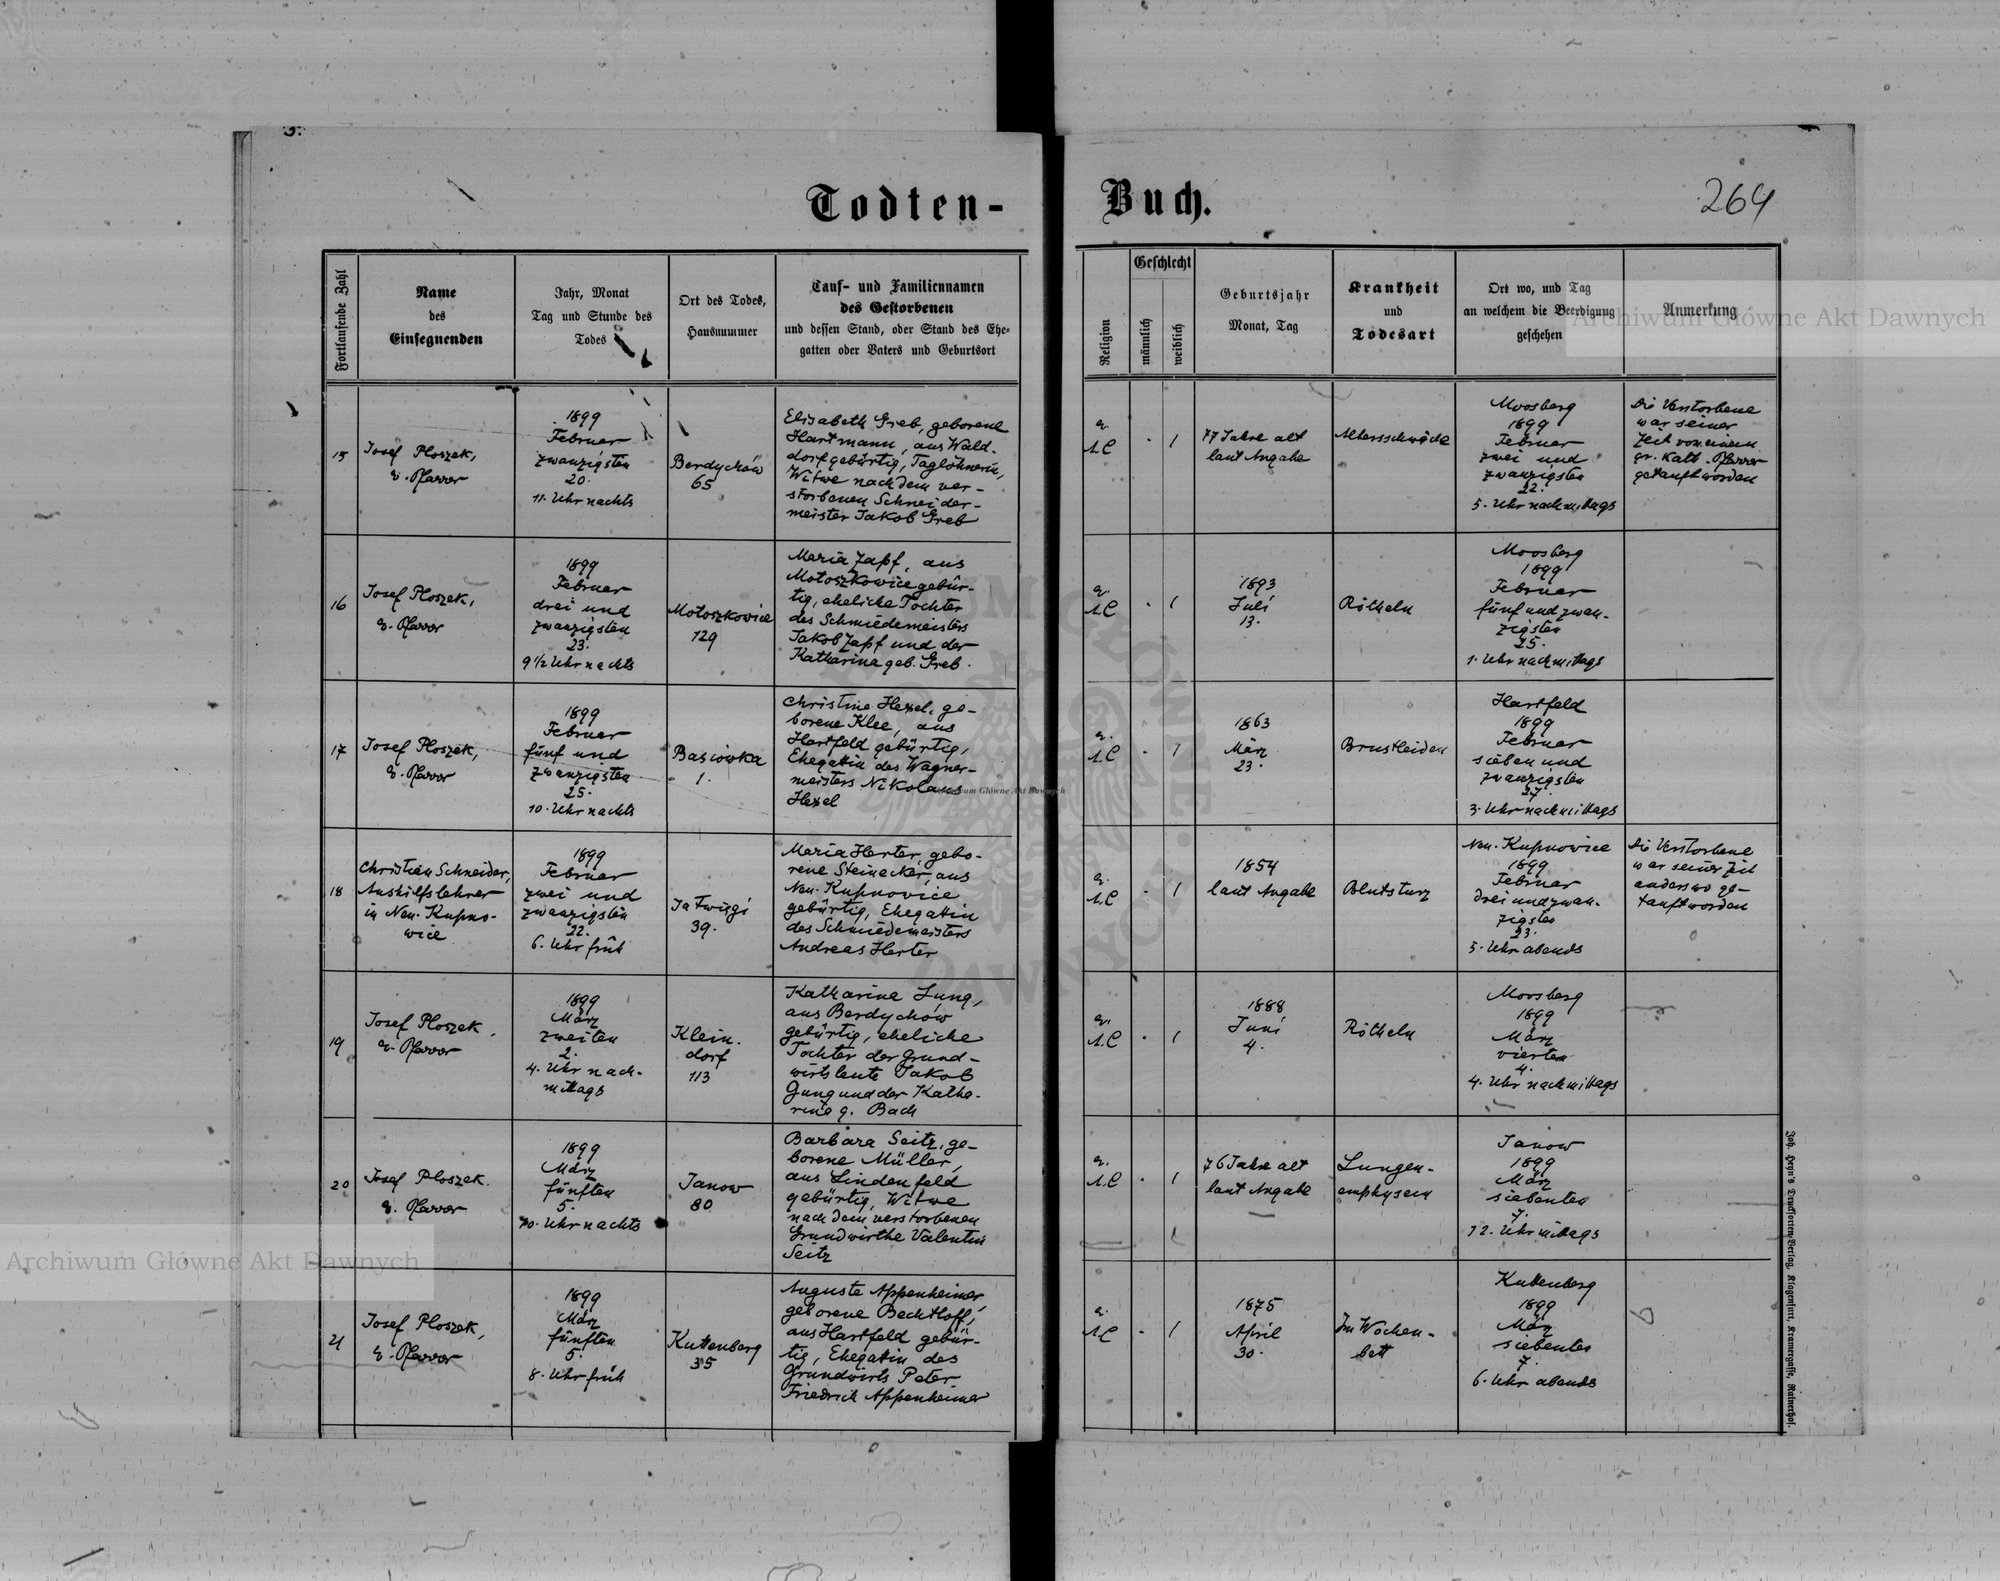 Todten-
Buch.
264
Fortlaufende Zahl
Name
des
Einsegnenden
Jahr, Monat
Tag und Stunde des
Todes
Ort des Todes,
Hausnummer
Tauf- und Familiennamen
des Gestorbenen
und dessen Stand, oder Stand des Ehe-
gatten oder Vaters und Geburtsort
Religion
Geschlecht
männlich
weiblich
Geburtsjahr
Monat, Tag
Krankheit
und
Todesart
Ort wo, und Tag
an welchem die Beerdigung
geschehen
Anmerkung
15
Josef Ploszek,
e. Pfarrer
1899
Februar
zwanzigsten
20.
11. Uhr nachts
Berdychów
65
Elisabeth Greb, geborene
Hartmann, aus Wald-
dorf gebürtig, Taglöhnerin,
Witwe nach dem ver-
storbenen Schneider-
meister Jakob Greb
e.
A.C
·
1
77 Jahre alt
laut Angabe
Altersschwäche
Moosberg
1899
Februar
zwei und
zwanzigsten
22.
5. Uhr nachmittags
Die Verstorbene
war seiner
Zeit von einem
gr. kath. Pfarrer
getauft worden
16
Josef Ploszek,
e. Pfarrer
1899
Februar
drei und
zwanzigsten
23.
9 1/2 Uhr nachts
Motoszkowice
129
Maria Zapf, aus
Motoszkowice gebür-
tig, eheliche Tochter
des Schmiedemeisters
Jakob Zapf und der
Katharina geb. Greb.
e.
A.C
·
1
1893
Juli
13.
Rötheln
Moosberg
1899
Februar
fünf und zwan-
zigsten
25.
1. Uhr nachmittags
17
Josef Ploszek,
e. Pfarrer
1899
Februar
fünf und
zwanzigsten
25.
10. Uhr nachts
Basiowka
1.
Christine Hexel, ge-
borene Klee, aus
Hartfeld gebürtig,
Ehegatin des Wagner-
meisters Nikolaus
Hexel
e.
A.C
·
1
1863
März
23.
Brustleiden
Hartfeld
1899
Februar
sieben und
zwanzigsten
27.
3. Uhr nachmittags
18
Christian Schneider,
Aushilfslehrer
in Neu-Kupno-
wice
1899
Februar
zwei und
zwanzigsten
22.
6. Uhr früh
Jatwięgi
39.
Maria Herter, gebo-
rene Steinecker, aus
Neu-Kupnovice
gebürtig, Ehegattin
des Schmiedemeisters
Andreas Herter
e.
A.C
·
1
1854
laut Angabe
Blutsturz
Neu-Kupnowice
1899
Februar
drei und zwan-
zigsten
23.
5. Uhr abends
Die Verstorbene
war seiner Zeit
anderswo ge-
tauft worden
19
Josef Ploszek.
e. Pfarrer
1899
März
zweiten
2.
4. Uhr nach-
mittags
Klein-
dorf
113
Katharina Jung,
aus Berdychów
gebürtig, eheliche
Tochter der Grund-
wirtsleute Jakob
Jung und der Katha-
rina g. Bach
e.
A.C
·
1
1888
Juni
4.
Rötheln
Moosberg
1899
März
vierten
4.
4. Uhr nachmittags
20
Josef Ploszek.
e. Pfarrer
1899
März
fünften
5.
10. Uhr nachts
Janow
80
Barbara Seitz, ge-
borene Müller,
aus Lindenfeld
gebürtig, Witwe
nach dem verstorbenen
Grundwirthe Valentin
Seitz
e.
A.C
·
1
76 Jahre alt
laut Angabe
Lungen-
emphysem
Janow
1899
März
siebenten
7.
12. Uhr mittags
21
Josef Ploszek,
e. Pfarrer
1899
März
fünften
5.
8. Uhr früh
Kuttenberg
35
Auguste Appenheimer
geborene Bechtloff,
aus Hartfeld gebür-
tig, Ehegatin des
Grundwirts Peter
Friedrich Appenheimer
e.
A.C
·
1
1875
April
30.
Im Wochen-
bett
Kuttenberg
1899
März
siebenten
7.
6. Uhr abends
Joh. Heyn's Drucksorten-Verlag, Klagenfurt, Kramergasse, Rainerhof.
Archiwum Główne Akt Dawnych
Archiwum Główne Akt Dawnych
Archiwum Główne Akt Dawnych